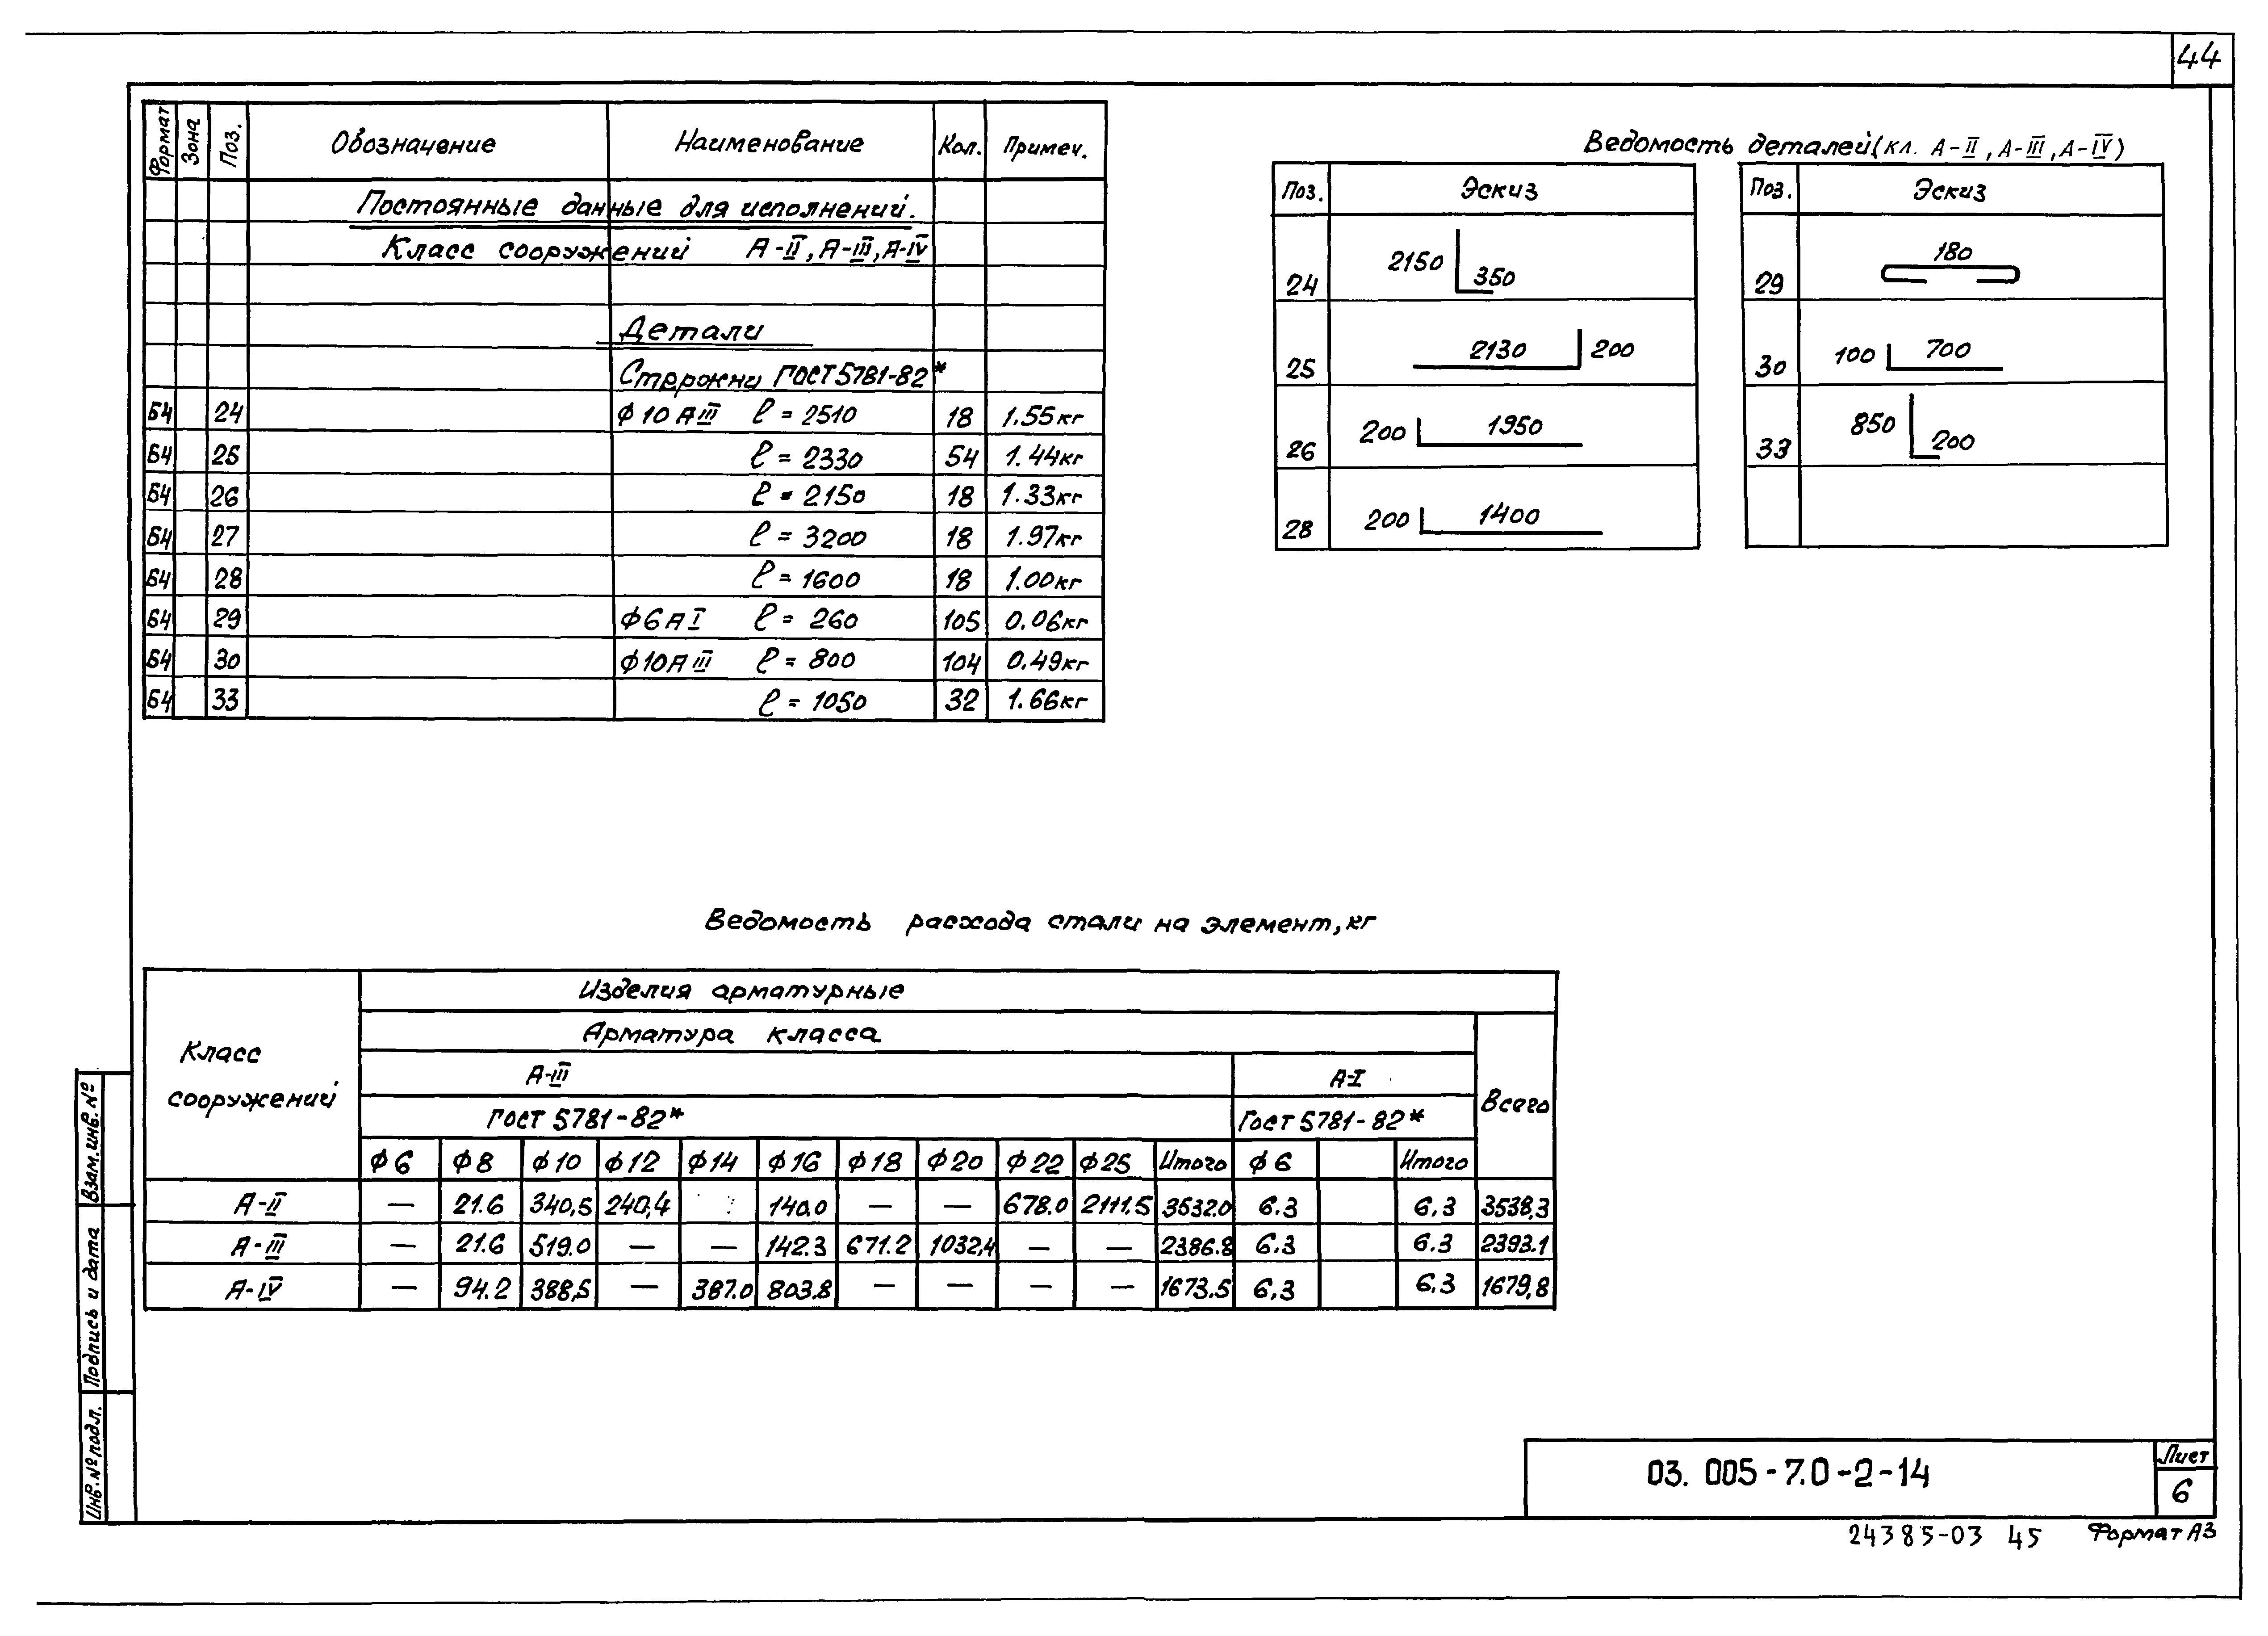 44
Формат Зона Поз. Обозначение Наименование Кол. Примеч.
Постоянные данные для исполнений.
Класс сооружений А-II, А-III, А-IV
Детали
Стержни ГОСТ 5781-82*
Б4 24 ϕ10 АIII ℓ = 2510 18 1.55кг
Б4 25 ℓ = 2330 54 1.44кг
Б4 26 ℓ = 2150 18 1.33кг
Б4 27 ℓ = 3200 18 1.97кг
Б4 28 ℓ = 1600 18 1.00кг
Б4 29 ϕ6 АI ℓ = 260 105 0.06кг
Б4 30 ϕ10 АIII ℓ = 800 104 0.49кг
Б4 33 ℓ = 1050 32 1.66кг
Ведомость деталей (кл. А-II, А-III, А-IV)
Поз. Эскиз
24 2150 350
25 2130 200
26 200 1950
28 200 1400
Поз. Эскиз
29 180
30 100 700
33 850 200
Ведомость расхода стали на элемент, кг
Класс сооружений
Изделия арматурные
Арматура класса
Всего
А-III А-I
ГОСТ 5781-82* ГОСТ 5781-82*
ϕ6 ϕ8 ϕ10 ϕ12 ϕ14 ϕ16 ϕ18 ϕ20 ϕ22 ϕ25 Итого ϕ6 Итого
А-II — 21.6 340,5 240,4 140.0 — — 678.0 2111.5 3532.0 6.3 6.3 3538,3
А-III — 21.6 519.0 — — 142.3 671.2 1032,4 — — 2386.8 6.3 6.3 2393.1
А-IV — 94.2 388,5 — 387.0 803.8 — — — — 1673.5 6.3 6.3 1679,8
Взам.инв.№
Подпись и дата
Инв.№подл.
03.005-7.0-2-14
Лист
6
24385-03 45 Формат А3